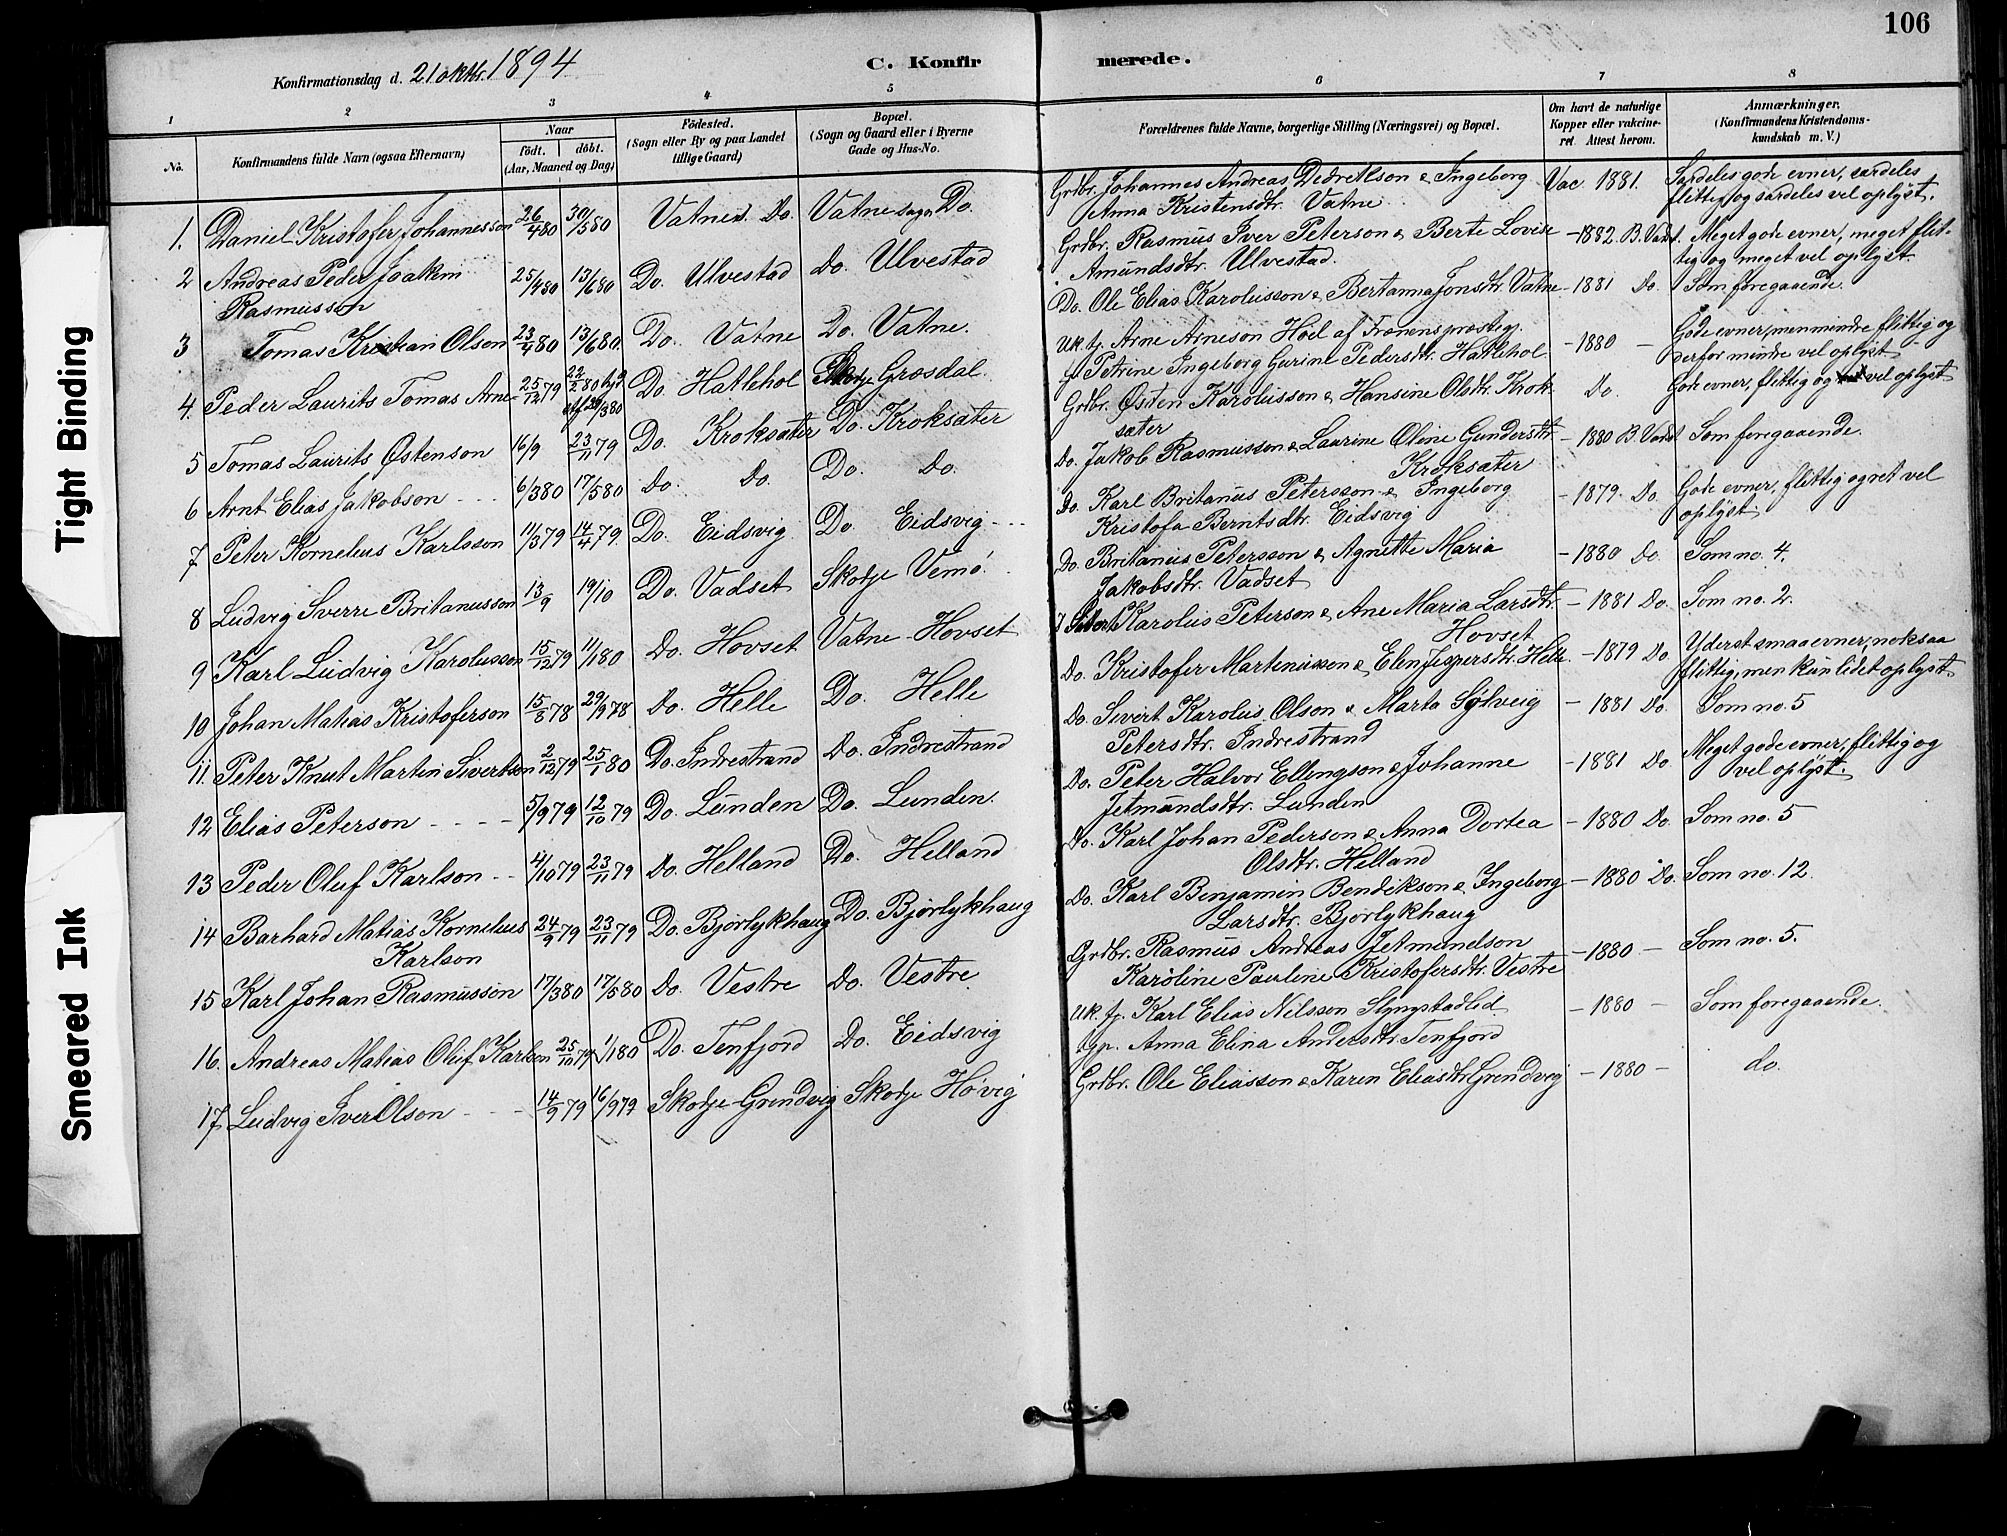 106
Konfirmationsdag d. 21 oktbr. 1894
C. Konfirmerede.
1 2 3 4 5 6 7 8
No.
Konfirmandens fulde Navn (ogsaa Efternavn)
Naar
födt. döbt.
(Aar, Maaned og Dag)
Födested.
(Sogn eller By og paa Landet
tillige Gaard)
Bopæl.
(Sogn og Gaard eller i Byerne
Gade og Hus-No.
Forældrenes fulde Navne, borgerlige Stilling (Næringsvei) og Bopæl.
Om havt de naturlige
Kopper eller vakcine-
ret. Attest herom.
Anmærkninger.
(Konfirmandens Kristendoms-
kundskab m. V.)
1. Daniel Kristofer Johannesson 26/4 80 30/5 80 Vatnes. Do. Vatne sogn Do.
Grdbr. Johannes Andreas Ingeborg Vac 1881. Særdeles gode evner, særdeles
Anna Kristensdtr. Vatne flittig og særdeles vel oplyst.
2 Andreas Peder Joakim 25/4 80 13/6 80 Do. Ulvestad Do. Ulvestad
Rasmusson
Grdbr. Rasmus Iver Peterson & Berte Lovise - 1882 B. Vadst. Meget gode evner, meget flit-
Amundsdtr. Ulvestad. tig og meget vel oplyst.
3 Tomas Kristian Olson 23/4 80 13/6 80. Do. Vatne Do. Vatne.
Do. Ole Elias Karolusson & Bertanna Jonsdtr. Vatne - 1881 Do. Som foregaaende.
4. Peder Laurits Tomas Arne- 25/12 79 22/2 80 Do. Hatlehol Skodje Grosdal.
Uk. fj. Arne Arneson Hoel af Frænens præstegj. - 1880 - Gode evner, men mindre flittig og
Petrine Ingeborg Gurine Pedersdtr. Hatlehol derfor mindre vel oplyst
5 Tomas Laurits Østenson 16/9 23/11 79 Do. Kroksæter Do. Kroksæter
Grdbr. Østen Karolusson & Hansine Olsdtr. Krok- Do. Gode evner, flittig og vel oplyst
sæter
6 Arnt Elias Jakobson 6/3 80 17/5 80 Do. Do. Do. Do.
Do. Jakob Rasmusson & Laurine Oline Gundersdtr. - 1880 B. Vadst. Som foregaaende.
Kroksæter
7 Peter Kornelius Karlsson 11/3 79 14/4 79. Do. Eidsvig Do. Eidsvig
Do. Karl Britanus Petersson & Ingeborg - 1879. Do. Gode evner, flittig og ret vel
Kristofa Berntsdtr. Eidsvig oplyst.
8 Ludvig Sverre Britanusson 13/9 19/10 Do. Vadset Skodje Vemö.
Do. Britanus Petersson & Agnette Maria - 1880 Do. Som no. 4.
Jakobsdtr. Vadset
9 Karl Ludvig Karolusson 15/12 79 11/1 80 Do. Hovset Vatne Hovset
Karolus Peterson & Ane Maria Larsdtr. - 1881 Do. Som no. 2.
Hovset
10 Johan Matias Kristoferson 15/8 78 29/9 78 Do. Helle Do. Helle
Do. Kristofer Martinusson & Elen Jespersdtr. Helle. - 1879 Do. Yderst smaa evner, noksaa
flittig, men kun lidet oplyst.
11. Peter Knut Martin Sivertson 2/12 79 25/1 80 Do. Indrestrand Do. Indrestrand
Do. Sivert Karolus Olson & Marta Sølveig - 1881 Do. Som no. 5
Petersdtr. Indrestrand
12 Elias Peterson 5/9 79 12/10 79 Do. Lunden Do. Lunden.
Do. Peter Halvor Ellingson & Johanne - 1881 Do Meget gode evner, flittig og
Jetmundsdtr. Lunden vel oplyst.
13 Peder Oluf Karlson 4/10 79 23/11 79 Do. Helland Do. Helland
Do. Karl Johan Pederson & Anna Dortea - 1880 Do. Som no. 5
Olsdtr. Helland
14 Barhard Matias Kornelius 24/9 79 23/11 79 Do. Bjørlykhaug Do. Bjørlykhaug
Karlson
Do. Karl Benjamin Bendikson & Ingeborg - 1880 Do. Som no. 12.
Larsdtr. Bjørlykhaug
15 Karl Johan Rasmusson 17/3 80 17/5 80 Do. Vestre Do. Vestre
Grdbr. Rasmus Andreas Jetmundson - 1880 - Som no. 5.
Karoline Pauline Kristofersdtr. Vestre
16. Andreas Matias Oluf Karlson 25/10 79 1/1 80 Do. Tenfjord Do. Eidsvig
Uk. fj. Karl Elias Nilsson Slyngstadlid - 1880 - Som foregaaende.
gp. Anna Elina Andersdtr. Tenfjord
17 Ludvig Iver Olson 14/9 79 16/9 79 Skodje Grendvig Skodje Høvig
Grdbr. Ole Eliasson & Karen Eliasdtr. Grendvig - 1880 - do.
Tight Binding
Smeared Ink